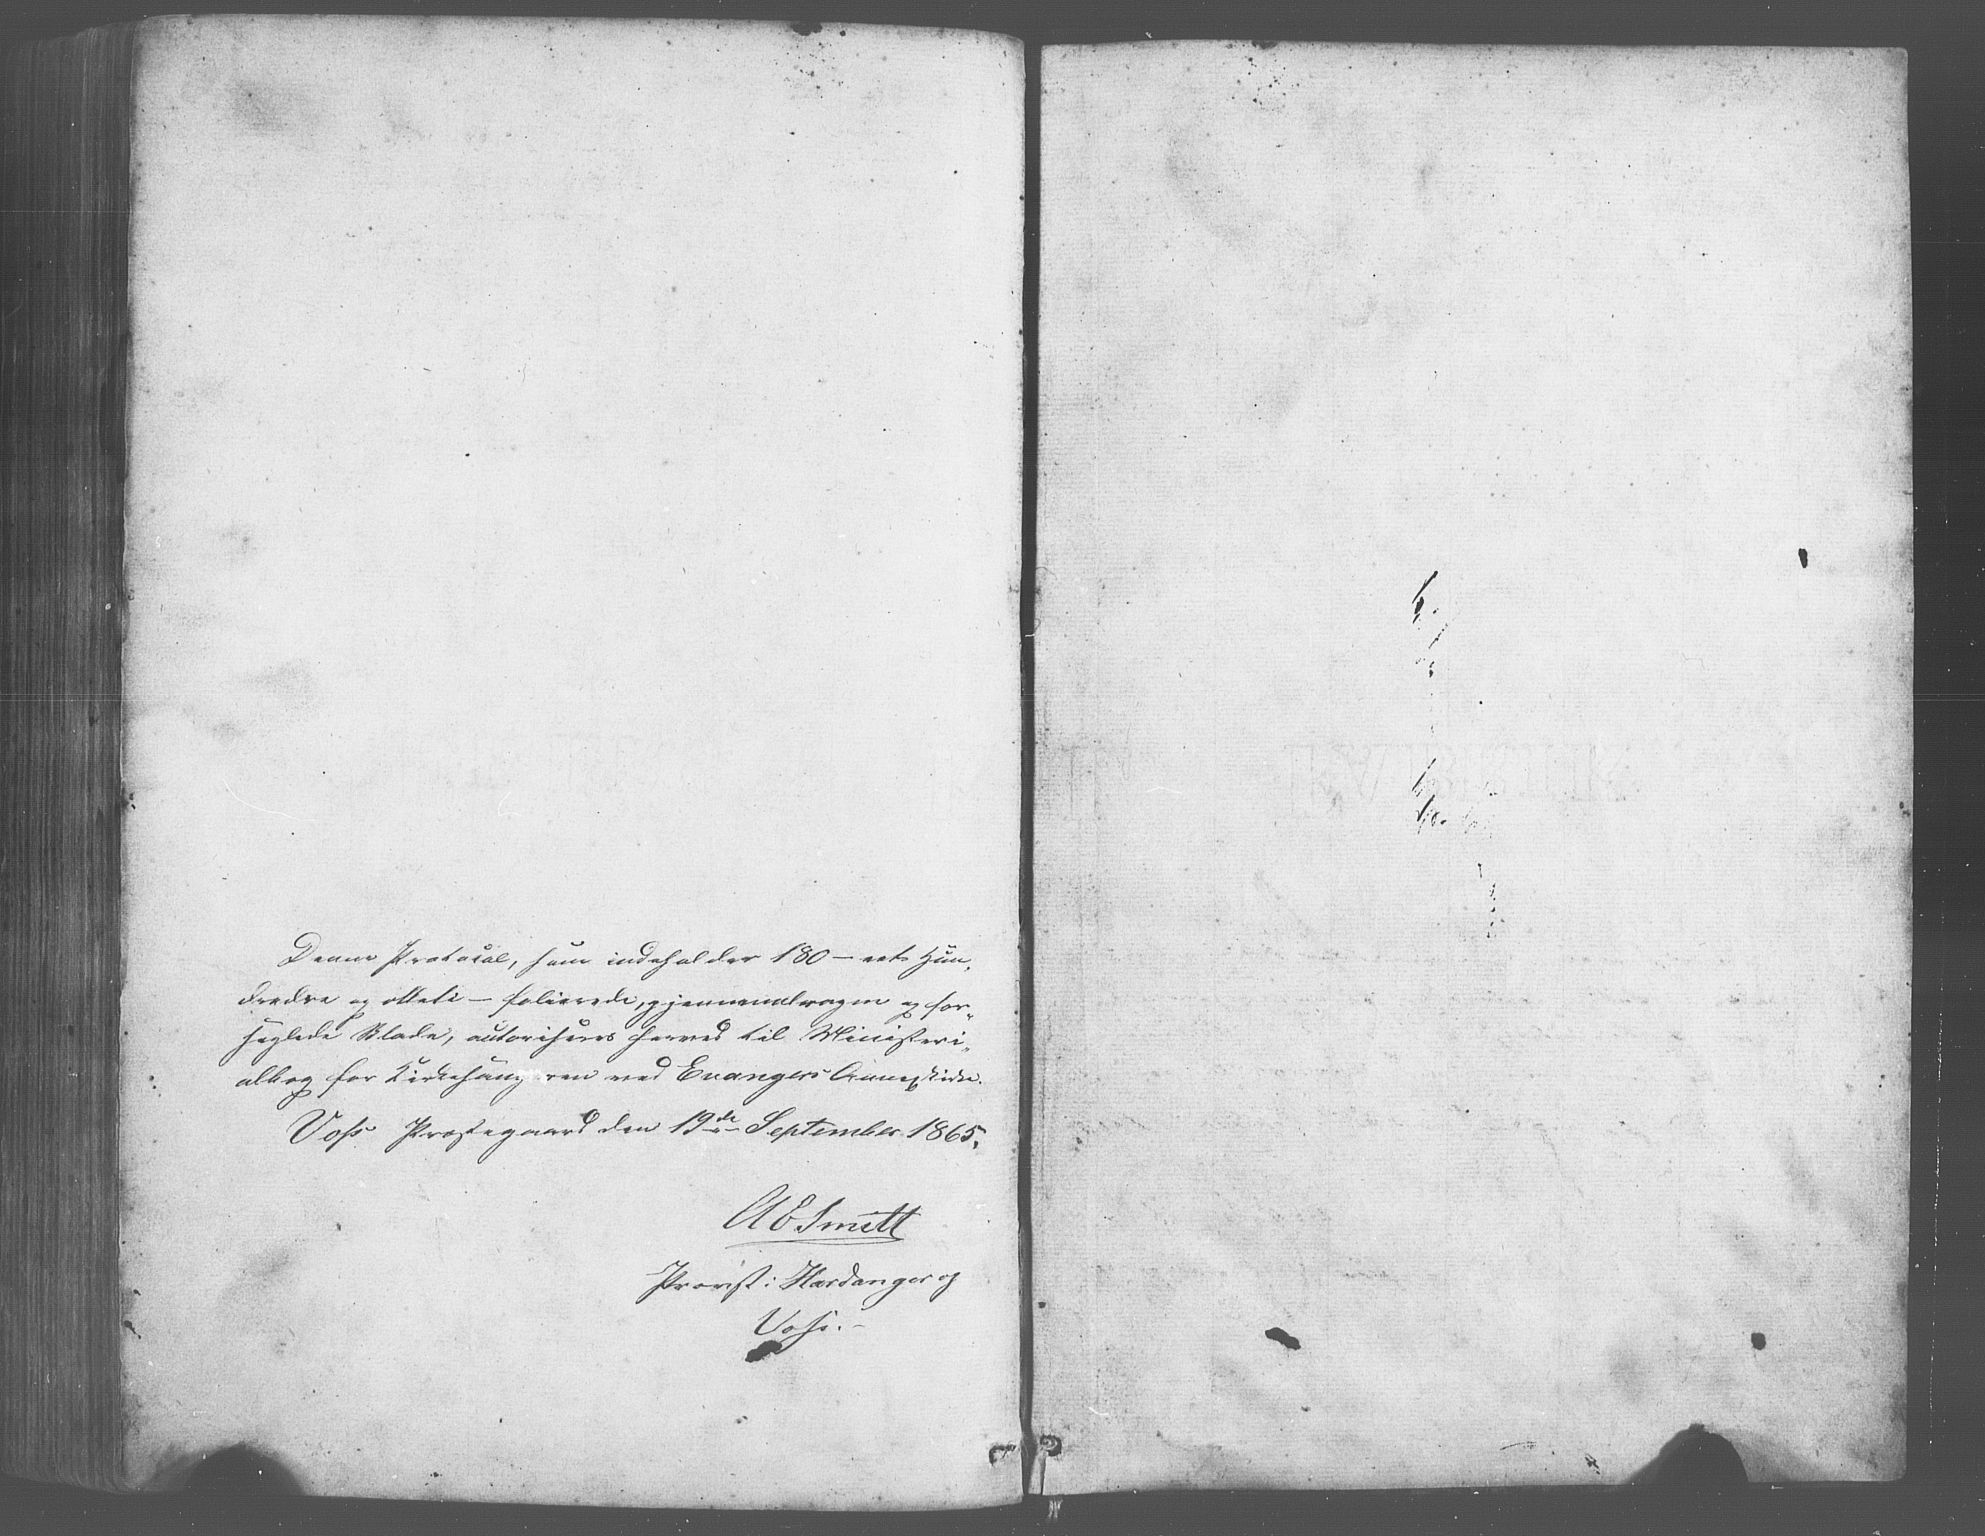 Denne Protocol, som indeholder 180 – eet Hun-
drede og otteti – folierede, gjennemdragne og for-
seglede Blade, autoriseres herved til Ministeri-
albog for Kirkesangeren ved Evangers Annexkirke.
Voss Præstegaard den 19de September 1865.
A E Smitt
Provst i Hardanger og
Voss.–